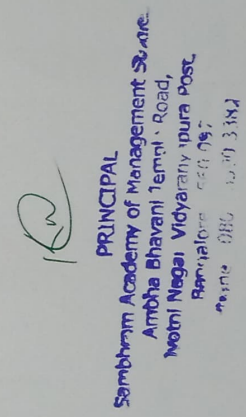 PRINCIPAL
Sambhram Academy of Management
Ambha Bhavani Temple Road,
Nagar Vidyaranyapura Post
Bangalore
Phone 080